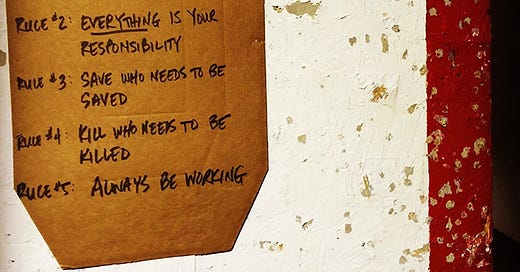 RULE #2: EVERYTHING IS YOUR
RESPONSIBILITY
RULE #3: SAVE WHO NEEDS TO BE
SAVED
RULE #4: KILL WHO NEEDS TO BE
KILLED
RULE #5: ALWAYS BE WORKING